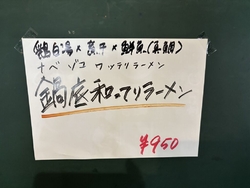 鶏白湯×煮干×鮮魚(真鯛)
ナベゾコワッテリラーメン
鍋底和ってりラーメン
¥950